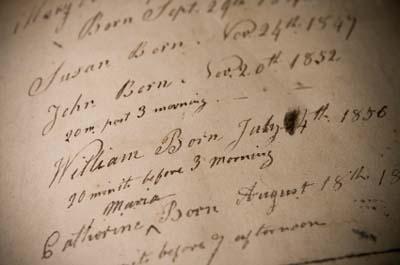 Mary
Born Sept. 29th
Susan Born. Nov. 24th. 1847
John Born. Nov. 20th 1852
20 m. past 3 morning.
William Born July 4th. 1856
20 minits before 3 morning
Maria
Catherine ^ Born August 18th. 18
before 7 afternoon